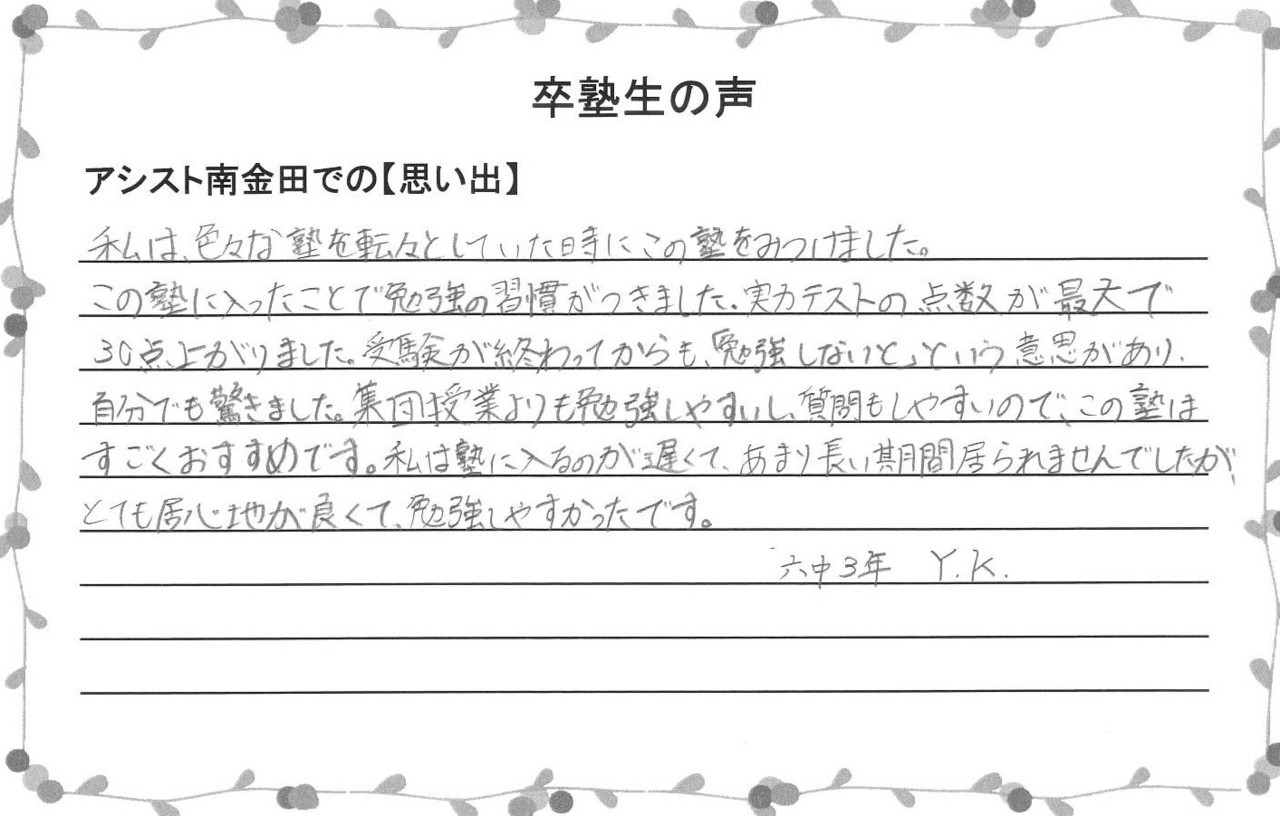 卒塾生の声
アシスト南金田での【思い出】
私は、色々な塾を転々としていた時にこの塾をみつけました。
この塾に入ったことで勉強の習慣がつきました。実力テストの点数が最大で
30点上がりました。受験が終わってからも、「勉強しないと」という意思があり、
自分でも驚きました。集団授業よりも勉強しやすいし、質問もしやすいので、この塾は
すごくおすすめです。私は塾に入るのが遅くて、あまり長い期間居られませんでしたが、
とても居心地が良くて、勉強しやすかったです。
六中3年 Y.K.